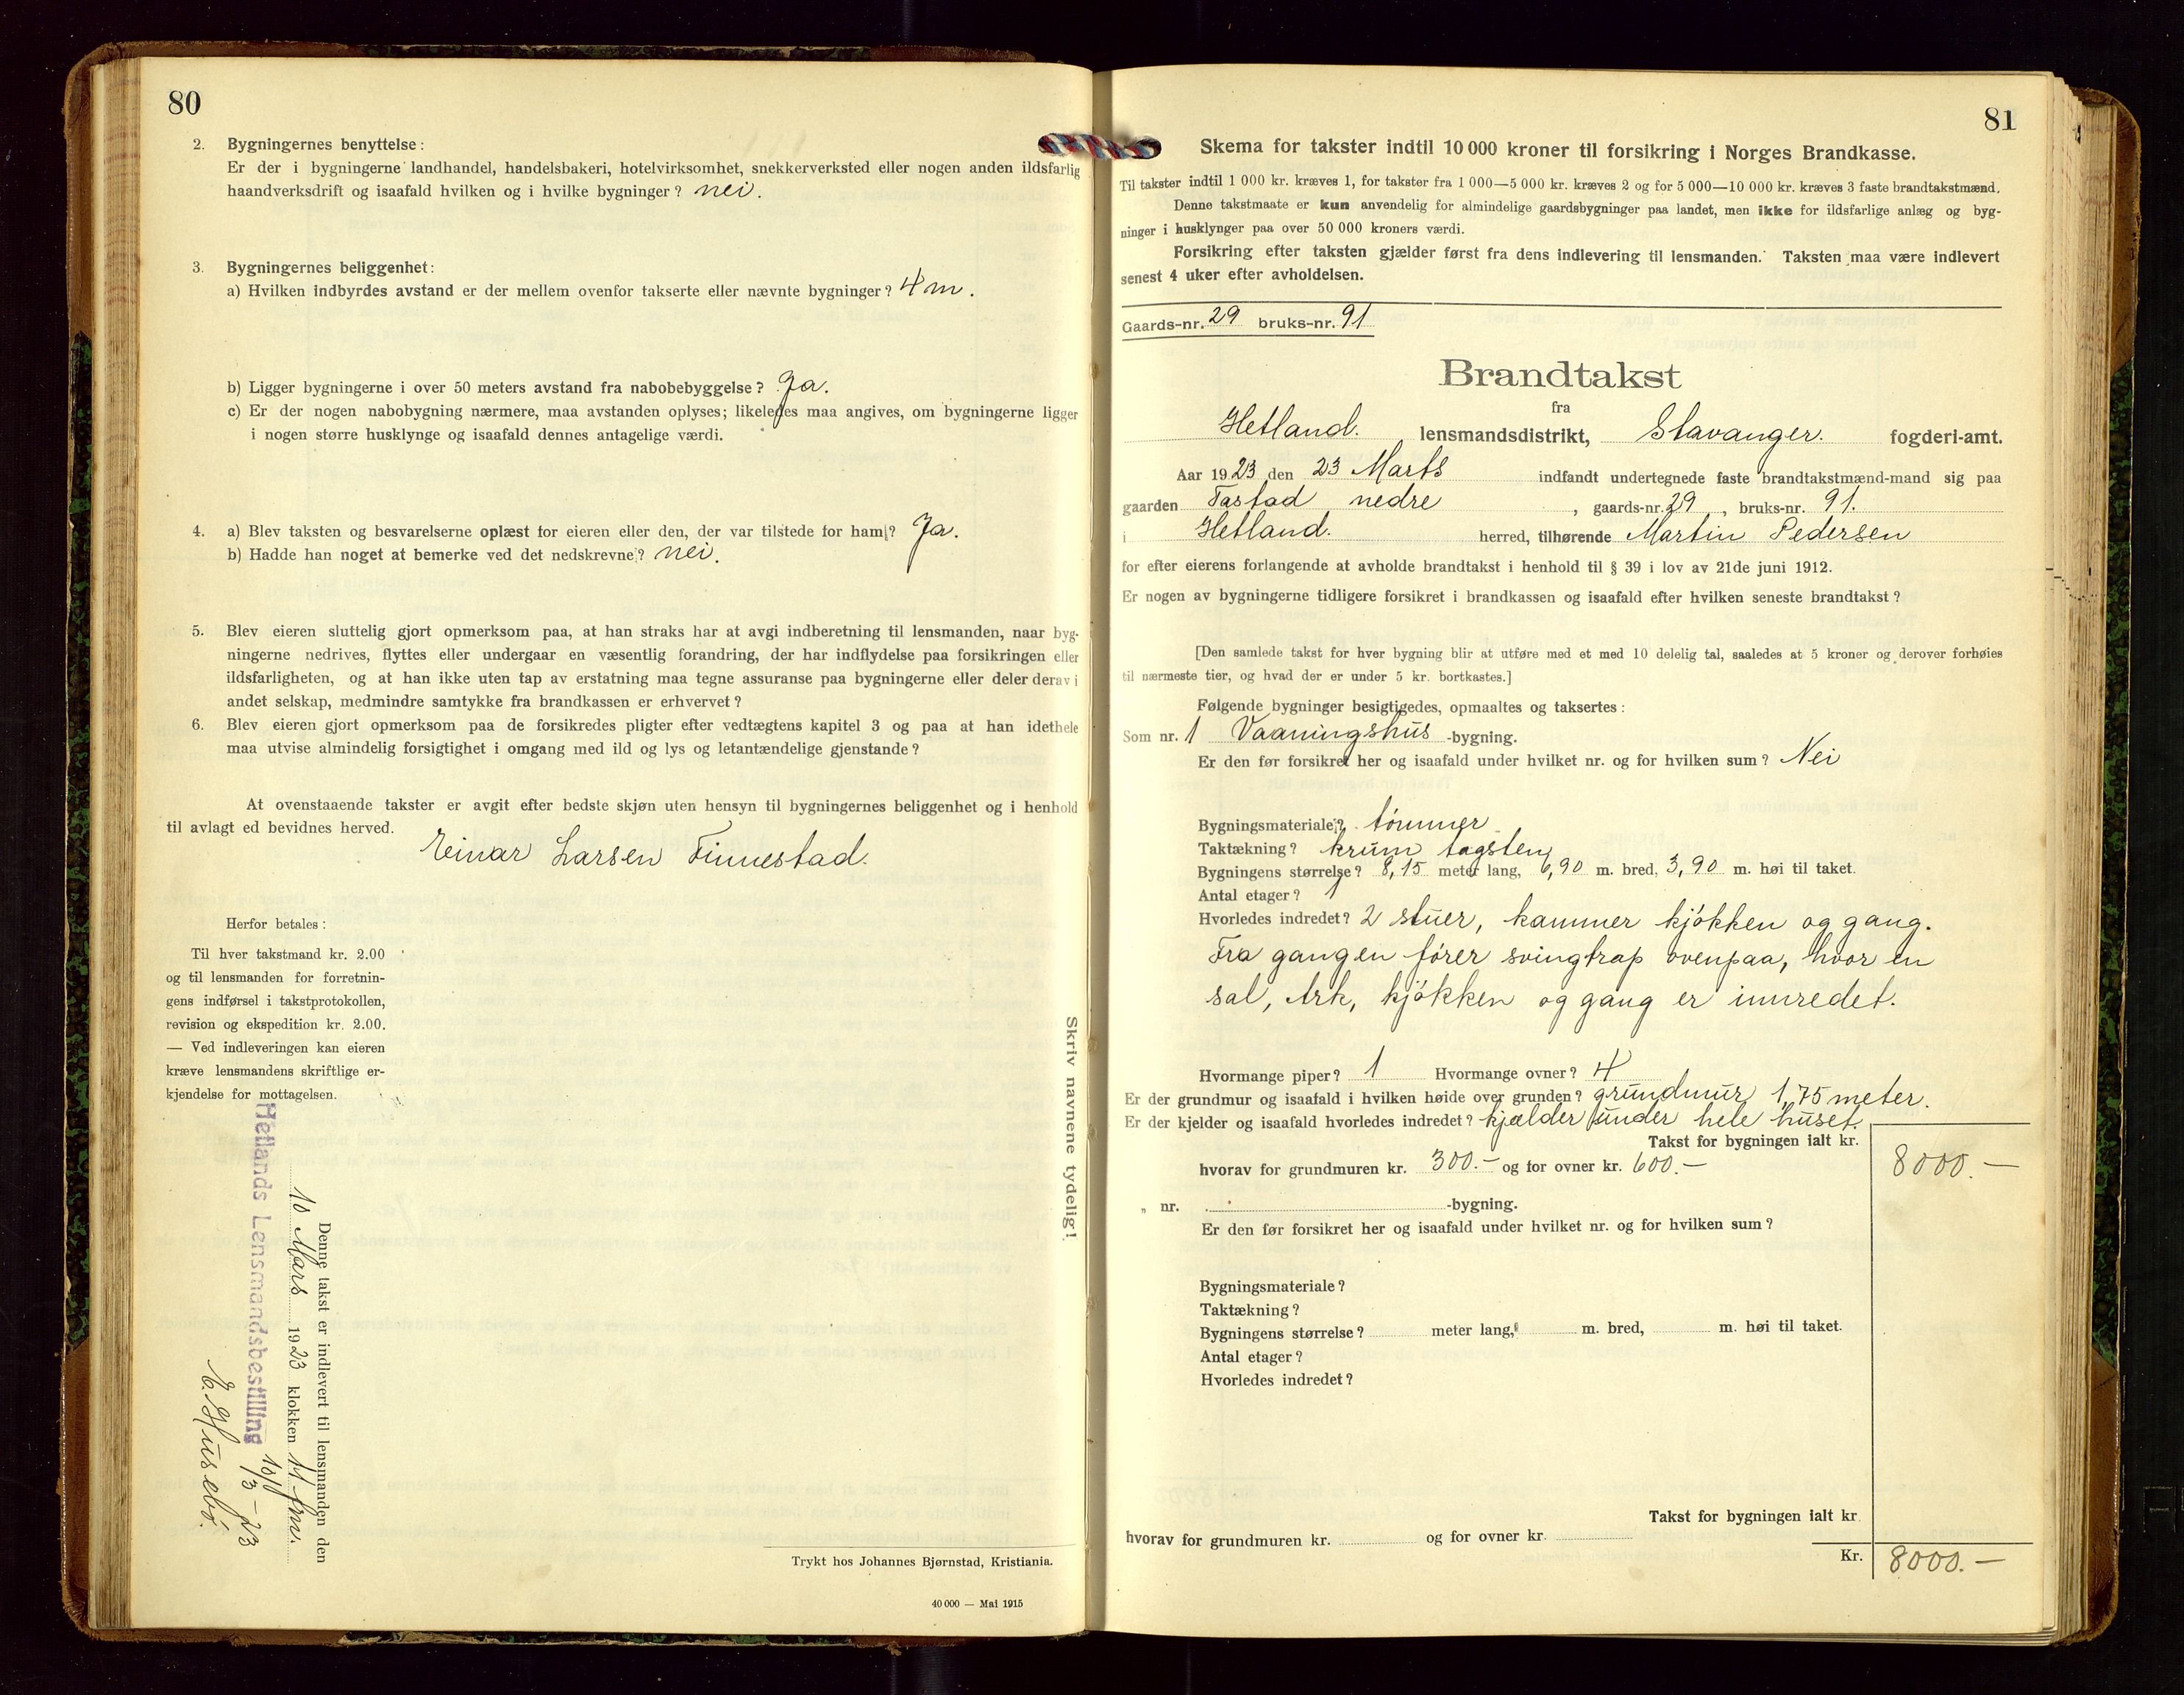 80
2. Bygningernes benyttelse:
Er der i bygningerne landhandel, handelsbakeri, hotelvirksomhet, snekkerverksted eller nogen anden ildsfarlig
haandverksdrift og isaafald hvilken og i hvilke bygninger? nei.
3. Bygningernes beliggenhet:
a) Hvilken indbyrdes avstand er der mellem ovenfor takserte eller nævnte bygninger? 4 m.
b) Ligger bygningerne i over 50 meters avstand fra nabobebyggelse? Ja.
c) Er der nogen nabobygning nærmere, maa avstanden oplyses; likeledes maa angives, om bygningerne ligger
i nogen større husklynge og isaafald dennes antagelige værdi.
4. a) Blev taksten og besvarelserne oplæst for eieren eller den, der var tilstede for ham? Ja.
b) Hadde han noget at bemerke ved det nedskrevne? nei.
5. Blev eieren sluttelig gjort opmerksom paa, at han straks har at avgi indberetning til lensmanden, naar byg-
ningerne nedrives, flyttes eller undergaar en væsentlig forandring, der har indflydelse paa forsikringen eller
ildsfarligheten, og at han ikke uten tap av erstatning maa tegne assuranse paa bygningerne eller deler derav i
andet selskap, medmindre samtykke fra brandkassen er erhvervet?
6. Blev eieren gjort opmerksom paa de forsikredes pligter efter vedtægtens kapitel 3 og paa at han idethele
maa utvise almindelig forsigtighet i omgang med ild og lys og letantændelige gjenstande?
At ovenstaaende takster er avgit efter bedste skjøn uten hensyn til bygningernes beliggenhet og i henhold
til avlagt ed bevidnes herved.
Einar Larsen Finnestad.
Herfor betales:
Til hver takstmand kr. 2.00
og til lensmanden for forretnin-
gens indførsel i takstprotokollen,
revision og ekspedition kr. 2.00.
— Ved indleveringen kan eieren
kræve lensmandens skriftlige er-
kjendelse for mottagelsen.
Denne takst er indlevert til lensmanden den
10 Mars 1923 klokken 11 fm.
Hetlands Lensmandsbestilling 10/3-23
E. Husebø.
Skriv navnene tydelig!
Trykt hos Johannes Bjørnstad, Kristiania.
40 000 — Mai 1915
81
Skema for takster indtil 10 000 kroner til forsikring i Norges Brandkasse.
Til takster indtil 1 000 kr. kræves 1, for takster fra 1 000—5 000 kr. kræves 2 og for 5 000—10 000 kr. kræves 3 faste brandtakstmænd.
Denne takstmaate er kun anvendelig for almindelige gaardsbygninger paa landet, men ikke for ildsfarlige anlæg og byg-
ninger i husklynger paa over 50 000 kroners værdi.
Forsikring efter taksten gjælder først fra dens indlevering til lensmanden. Taksten maa være indlevert
senest 4 uker efter avholdelsen.
Gaards-nr. 29 bruks-nr. 91
Brandtakst
fra
Hetland. lensmandsdistrikt, Stavanger. fogderi-amt.
Aar 1923 den 23 Marts indfandt undertegnede faste brandtakstmænd-mand sig paa
gaarden Tastad nedre, gaards-nr. 29, bruks-nr. 91.
i Hetland. herred, tilhørende Martin Pedersen
for efter eierens forlangende at avholde brandtakst i henhold til § 39 i lov av 21de juni 1912.
Er nogen av bygningerne tidligere forsikret i brandkassen og isaafald efter hvilken seneste brandtakst?
[Den samlede takst for hver bygning blir at utføre med et med 10 delelig tal, saaledes at 5 kroner og derover forhøies
til nærmeste tier, og hvad der er under 5 kr. bortkastes.]
Følgende bygninger besigtigedes, opmaaltes og taksertes:
Som nr. 1 Vaaningshus -bygning.
Er den før forsikret her og isaafald under hvilket nr. og for hvilken sum? Nei
Bygningsmateriale? tømmer
Taktækning? krum tagsten
Bygningens størrelse? 8,15 meter lang, 6,90 m. bred, 3,90 m. høi til taket.
Antal etager? 1
Hvorledes indredet? 2 stuer, kammer kjøkken og gang.
Fra gangen fører svingtrap ovenpaa, hvor en
sal, Ark, kjøkken og gang er innredet.
Hvormange piper? 1 Hvormange ovner? 4
Er der grundmur og isaafald i hvilken høide over grunden? grundmur 1,75 meter.
Er der kjelder og isaafald hvorledes indredet? kjælder under hele huset.
Takst for bygningen ialt kr. 8000.—
hvorav for grundmuren kr. 300.- og for ovner kr. 600.—
„ nr. -bygning.
Er den før forsikret her og isaafald under hvilket nr. og for hvilken sum?
Bygningsmateriale?
Taktækning?
Bygningens størrelse? meter lang, m. bred, m. høi til taket.
Antal etager?
Hvorledes indredet?
Takst for bygningen ialt kr.
hvorav for grundmuren kr. og for ovner kr.
Kr. 8000.—